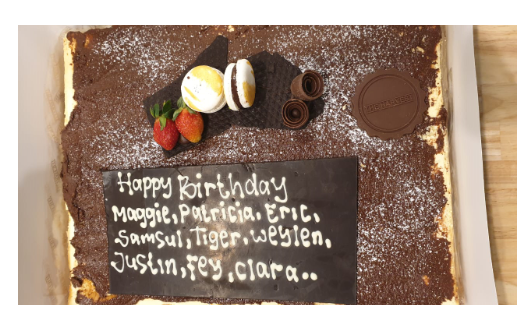 Happy Birthday
Maggie, Patricia, Eric,
Samsul, Tiger, Weylen,
Justin, Fey, Clara..